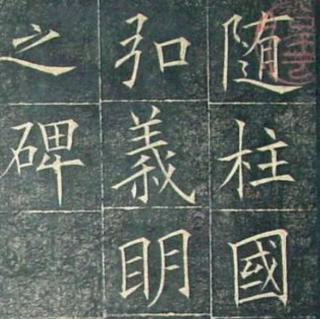 随柱國
弘義眀
之碑